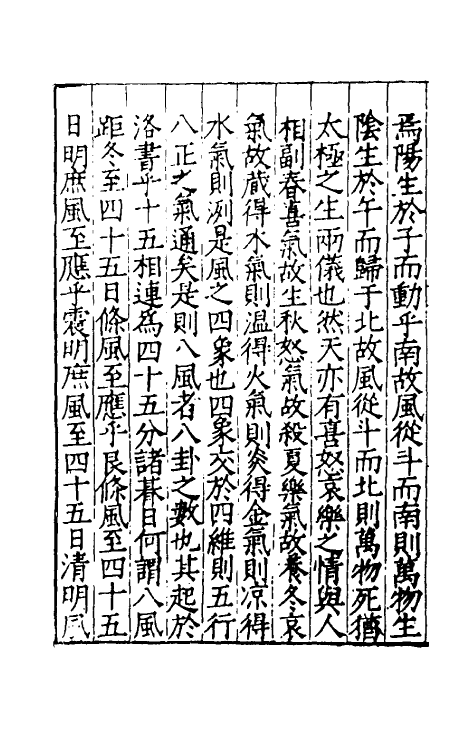 焉陽生於子而動乎南故風從斗而南則萬物生
陰生於午而歸于北故風從斗而北則萬物死猶
太極之生兩儀也然天亦有喜怒哀樂之情與人
相副春喜氣故生秋怒氣故殺夏樂氣故養冬哀
氣故藏得木氣則温得火氣則炎得金氣則凉得
水氣則冽是風之四象也四象交於四維則五行
八正之氣通矣是則八風者八卦之數也其起於
洛書乎十五相連爲四十五分諸朞日何謂八風
距冬至四十五日條風至應乎艮條風至四十五
日明庶風至應乎震明庶風至四十五日清明風